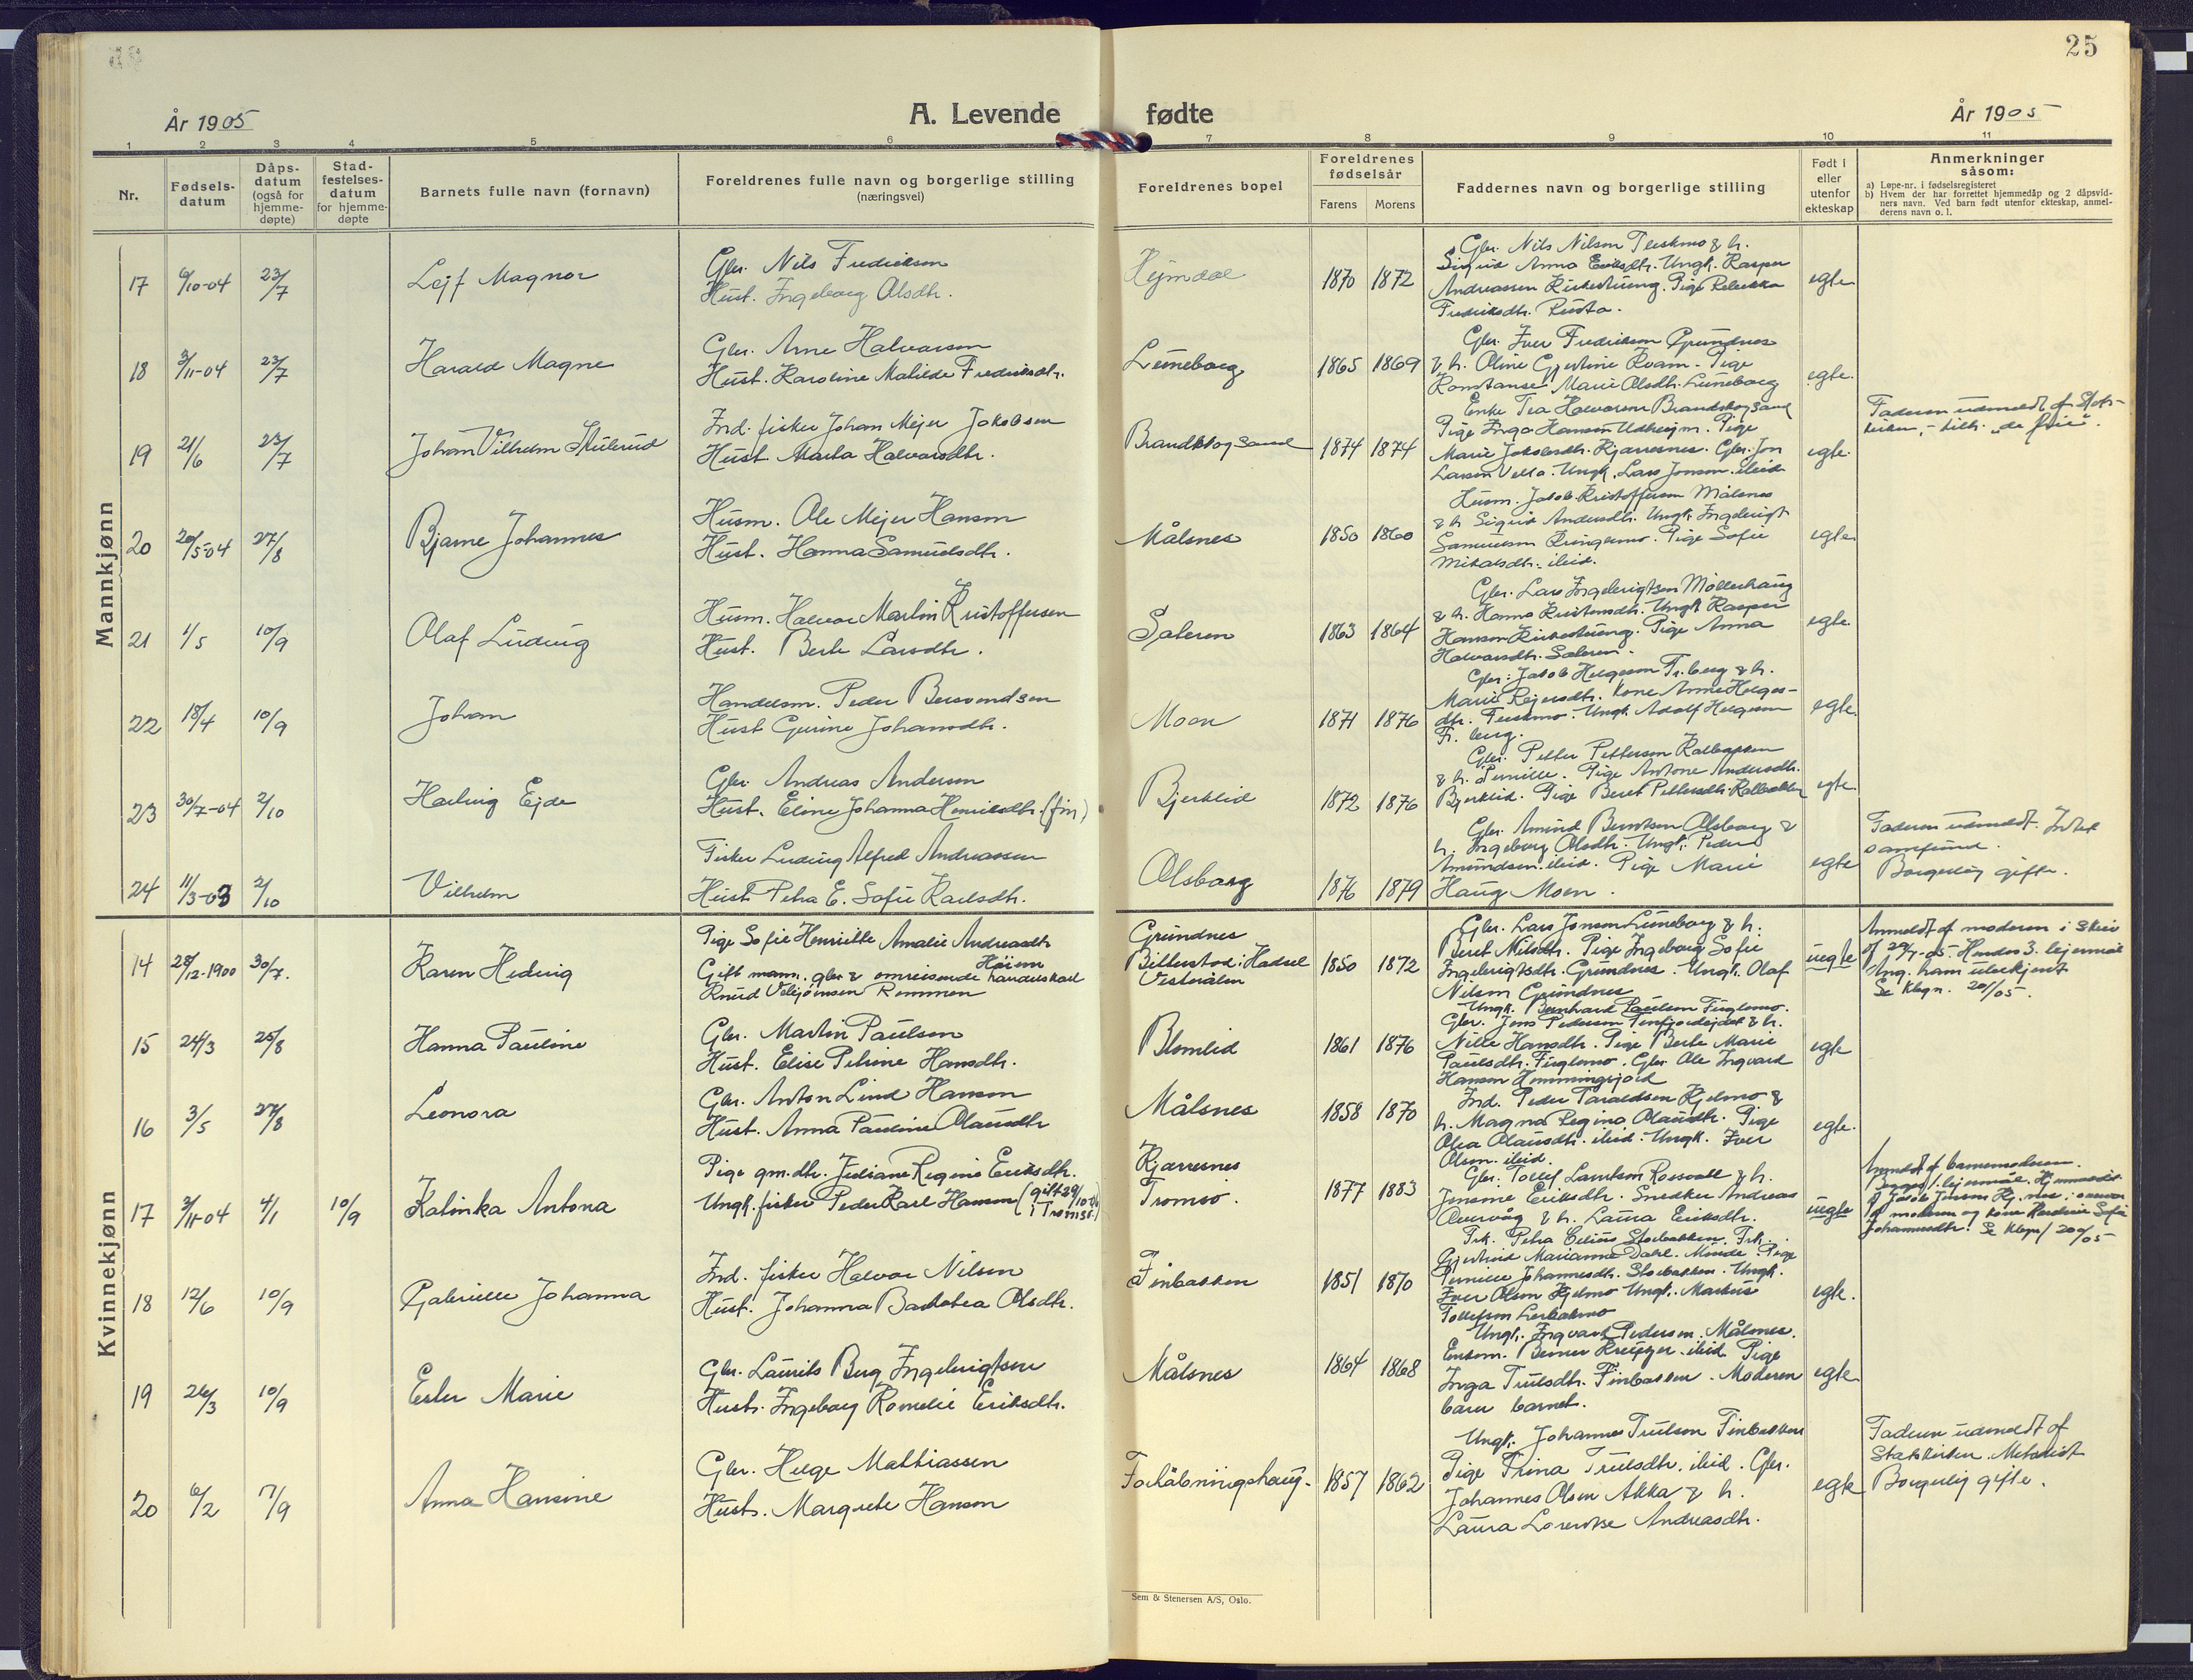 25
År 1905
A. Levende fødte
År 1905
1 2 3 4 5 6 7 8 9 10 11
Nr.
Fødsels-
datum
Dåps-
datum
(også for
hjemme-
døpte)
Stad-
festelses-
datum
for hjemme-
døpte
Barnets fulle navn (fornavn)
Foreldrenes fulle navn og borgerlige stilling
(næringsvei)
Foreldrenes bopel
Foreldrenes
fødselsår
Farens Morens
Faddernes navn og borgerlige stilling
Født i
eller
utenfor
ekteskap
Anmerkninger
såsom:
a) Løpe-nr. i fødselsregisteret
b) Hvem der har forrettet hjemmedåp og 2 dåpsvid-
ners navn. Ved barn født utenfor ekteskap, anmel-
derens navn o. l.
Mannkjønn
17 6/10-04 23/7 Lejf Magnor
Gbr. Nils Fredriksen
Hust. Ingeborg Olsdtr.
Hejmdal 1870 1872
Gbr. Nils Nilsen & h.
Sigrid Anna Eriksdtr. Ungk. Kasper
Andreassen Kirkestueng. Pige Rebekka
Fredriksdtr. Rusta.
egte
18 3/11-04 23/7 Harald Magne
Gbr. Arne Halvorsen
Hust. Karoline Matilde Fredriksdtr.
Luneborg 1865 1869
Gbr. Iver Fredriksen Grundnes
& h. Oline Gjertine Kvam. Pige
Konstanse Marie Olsdtr. Luneborg
egte.
19 21/6 23/7 Johan Vilhelm
Ind. fisker Johan Mejer Jakobsen
Hust. Marta Halvorsdtr.
Brandskogsand 1874 1874
Enke Tea Halvorsen Brandskogsand
Pige Inga Hansen Udhejm. Pige
Marie Jakobsdtr. Kjærresnes. Gbr. Jon
Larsen Ungk. Lars Jonsen ibid
egte.
Faderen udmeldt af Stats-
kirken, - tilh. "de frie".
20 20/5-04 27/8 Bjarne Johannes
Husm. Ole Mejer Hansen
Hust. Hanna Samuelsdtr.
Målsnes 1850 1860
Husm. Jakob Kristoffersen Målsnes
& h Sigrid Andersdtr. Ungk. Ingebrigt
Samuelsen Pige Sofie
Mikalsdtr. ibid.
egte
21 1/5 10/9 Olaf Ludvig
Husm. Halvor Martin Kristoffersen
Hust. Berte Larsdtr.
Søleren 1863 1864
Gbr. Lars Ingebrigtsen Møllerhaug
& h. Hanna Kristensdtr. Ungk. Kasper
Hansen Kirkestueng. Pige Anna
Halvorsdtr. Søleren.
egte
22 18/4 10/9 Johan
Handelsm. Peder Bersvendsen
Hust Gurine Johansdtr.
Moen 1871 1876
Gbr. Jakob Helgesen Fr.berg & h.
Marie Rejersdtr. Kone Anne Helges-
dtr. Ungk. Adolf Helgesen
Fr. berg.
egte.
23 30/7-04 2/10 Hartvig Ejde
Gbr. Andreas Andersen
Hust. Eline Johanna Henriksdtr. (fin)
Bjerklid 1872 1876
Gbr. Petter Pettersen Kalbakken
& h. Pernille. Pige Antone Andersdtr.
Bjerklid. Pige Beret Pettersdtr. Kalbakken
egte
24 11/3-03 2/10 Vilhelm
Fisker Ludvig Alfred Andreassen
Hust Petra E. Sofie Karlsdtr.
Olsborg 1876 1879
Gbr. Amund Berntsen Olsborg &
h. Ingeborg Olsdtr. Ungk. Peder
Amundsen. ibid. Pige Marie
Haug Moen.
egte
Faderen udmeldt. Intet
samfund.
Borgerlig gifte.
Kvinnekjønn
14 28/12-1900 30/7. Karen Hedvig
Pige Sofie Henriette Amalie Andreasdtr
Høien
Gift mann. gbr & omreisende handelskarl
Knud Remmen
Grundnes
Bitterstad i Hadsel
Vesterålen
1850 1872
Gbr. Lars Jonsen Luneborg & h.
Beret Nilsdtr. Pige Ingeborg Sofie
Ingebrigtsdtr. Grundnes. Ungk. Olaf
Nilsen Grundnes
uegte
Anmeldt af moderen i skriv
af 29/7-05. Hendes 3. lejermål
Ang. ham ubekjent
Se Klegn. 20/05.
15 24/3 25/8 Hanna Pauline
Gbr. Martin Paulsen
Hust. Elise Petrine Hansdtr.
Blomlid 1861 1876
Ungk. Bernhard Paulsen Fuglemo.
Gbr. Jens Pedersen & h.
Nille Hansdtr. Pige Berte Marie
Paulsdtr. Fuglemo. Gbr. Ole Ingvard
Hansen Hemmingsjord
egte
16 3/5 27/8 Leonora
Gbr. Anton Lind Hansen
Hust. Anna Pauline Olausdtr
Målsnes 1858 1870
Ind. Peder Taraldsen Kjelmo &
h. Magna Regina Olausdtr. Pige
Olea Olausdtr. ibid. Ungk. Iver
Olsen. ibid.
egte.
17 3/11-04 4/1 10/9 Kalinka Antona
Pige gm.dtr. Juliane Regine Eriksdtr.
Ungk. fisker Peder Karl Hansen (gift 29/10-06
i Tromsø.)
Kjærresnes
Tromsø.
1877 1883
Gbr. Tollef Lambersen Rossvoll & h.
Jensine Eriksdtr. Snedker Andreas
Aursvåg & h. Laura Eriksdtr.
uegte
Anmeldt af barnemoderen.
Begges 1. lejermål. Hjemmedøbt
af Jakob Jensen Kj.nes i overvær
af moderen og kone Sofie
Johannesdtr. Se Klegn/ 20/05
18 12/6 10/9 Gabrielle Johanna
Ind. fisker Halvor Nilsen
Hust. Johanna Olsdtr.
Finbakken 1851 1870
Frk. Petra Storbakken. Frk.
Gjertine Marianne Dahl. Pige
Pernille Johannesdtr. Storbakken. Ungk.
Iver Olsen Kjelmo Ungk. Markus
Tollefsen
egte.
19 26/3 10/9 Ester Marie
Gbr. Laurits Berg Ingebrigtsen
Hustr. Ingeborg Romelie Eriksdtr.
Målsnes 1864 1868
Ungk. Ingvart Pedersen. Målsnes.
ibid Pige
Inga Trulsdtr. Finbakken. Moderen
barer barnet.
egte
20 6/2 7/9 Anna Hansine
Gbr. Helge Mathiassen
Hustr. Margrete Hansen
1857 1862
Ungk. Johannes Trulsen Finbakken
Pige Trina Trulsdtr. ibid. Gbr.
Johannes Olsen Akka & h.
Laura Lorentse Andreasdtr.
egte
Faderen udmeldt af
Statskirken. Metodist
Borgerlig gifte.
Sem & Stenersen A/S, Oslo.